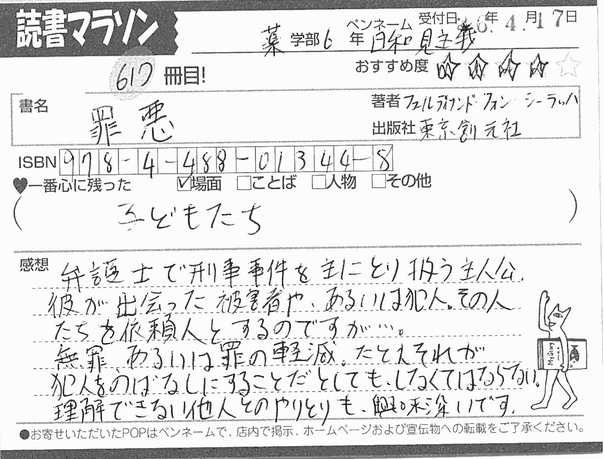 読書マラソン
617冊目!
薬学部6年
ペンネーム 日和見主義
受付日 16年4月17日
おすすめ度 ★★★★☆
書名 罪悪
著者 フェルディナンド・フォン・シーラッハ
出版社 東京創元社
ISBN 978-4-488-01344-8
♥一番心に残った ☑場面 □ことば □人物 □その他
(子どもたち)
感想 弁護士で刑事事件を主にとり扱う主人公。
彼が出会った被害者や、あるいは犯人。その人
たちを依頼人とするのですが…。
無罪、あるいは罪の軽減。たとえそれが
犯人をのばなしにすることだとしても、しなくてはならない。
理解できない他人とのやりとりも、興味深いです。
●お寄せいただいたPOPはペンネームで、店内で掲示、ホームページおよび宣伝物への転載をご了承ください。